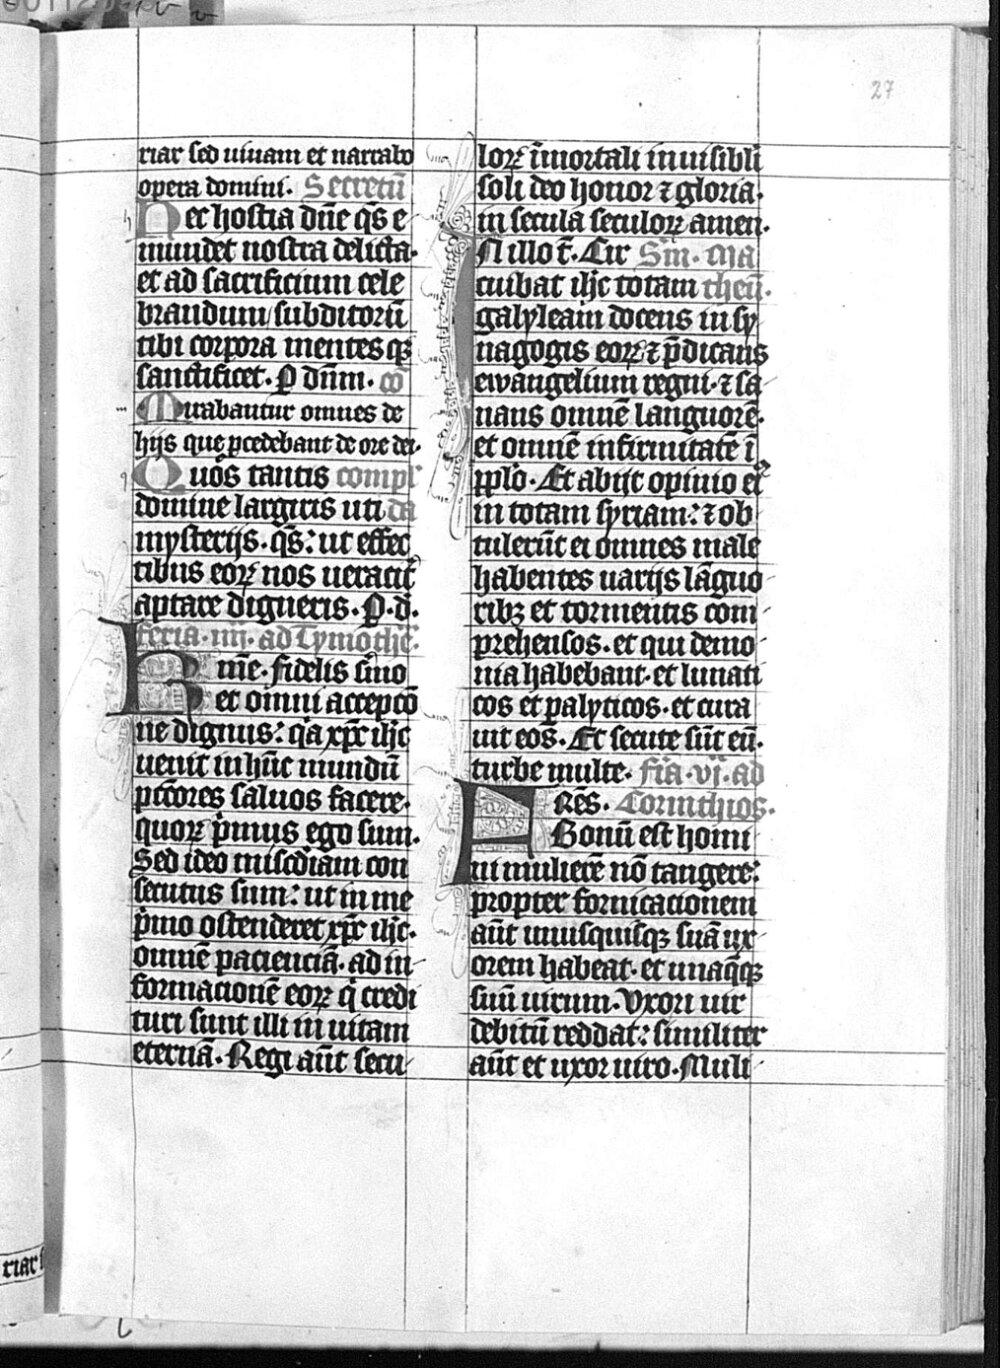 27
riar sed uiuam et narrabo
opera domini. Secretũ
Hec hostia dñe q̃s e
mundet nostra delicta.
et ad sacrificium cele
brandum subditorũ
tibi corpora mentesqꝫ
sanctificet. P dñm. cõ
Mirabantur omnes de
hijs que ꝓcedebant de ore dei.
Quos tantis compl
domine largiris uti da
mysterijs. q̃s: ut effec
tibus eoꝝ nos ueracit̾
aptare digneris. P. d.
feria. iiij. ad Tymothe.
Kṁe. fidelis s̾mo
et omni acceptõ
ne dignus: q̾a xp̃c ih̃c
uenit in hũc mundũ
pc̃cores saluos facere.
quoꝝ p̾mus ego sum.
Sed ideo misc̾diam con
secutus sum: ut in me
p̾mo ostenderet xp̃c ih̃c.
omnẽ pacienciã. ad in
formacionẽ eoꝝ q̾ credi
turi sunt illi in uitam
eternã. Regi aũt secu
loꝝ ĩmortali inuisibli
soli deo honor ⁊ gloria.
in secula seculoꝝ amen.
IN illo t̃. Cir Sm̃. Ma
cuibat ih̃c totam theũ.
galyleam docens in sy
nagogis eoꝝ ⁊ p̃dicans
ewangelium regni. ⁊ sa
nans omnẽ languorẽ.
et omnẽ infirmitatẽ ĩ
pp̃lo. Et abijt opinio ei᷒
in totam syriam: ⁊ ob
tulerũt ei omnes male
habentes uarijs lãguo
ribꝫ et tormentis com
prehensos. et qui demo
nia habebant. et lunati
cos et ꝑalyticos. et cura
uit eos. Et secute sũt eũ.
turbe multe. Fr̃a. vj. ad
FRẽs. Corinthios.
Bonũ est homi
ni mulierẽ nõ tangere:
propter fornicacionem
aũt unusquisqꝫ suã ux
orem habeat. et unaq̾qꝫ
suũ uirum. Vxori uir
debitũ reddat: similiter
aũt et uxor uiro. Muli
riar s